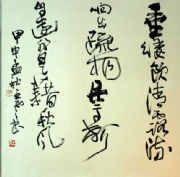 垂緌飲清露流
响出疏桐居高聲
自遠非是藉秋風
甲申孟秋